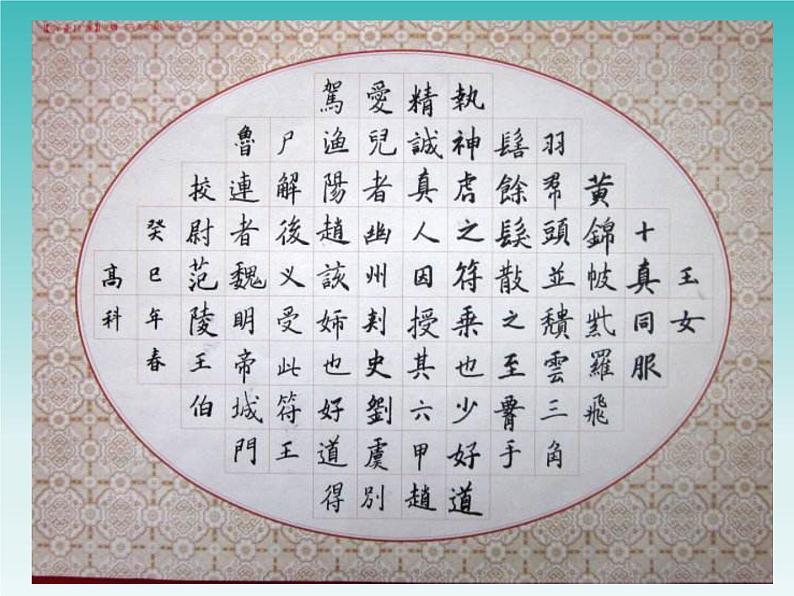 玉女
十真同服
黄錦帔紫羅飛
羽帬頭並穨雲三角
髻餘髮散之至腰手
執神虎之符乘也少好道
精誠真人因授其六甲趙
愛兒者幽州刾史劉虞別
駕渔陽趙該姉也好道得
尸解後又受此符王
魯連者魏明帝城門
校尉范陵王伯
癸巳年春
高科